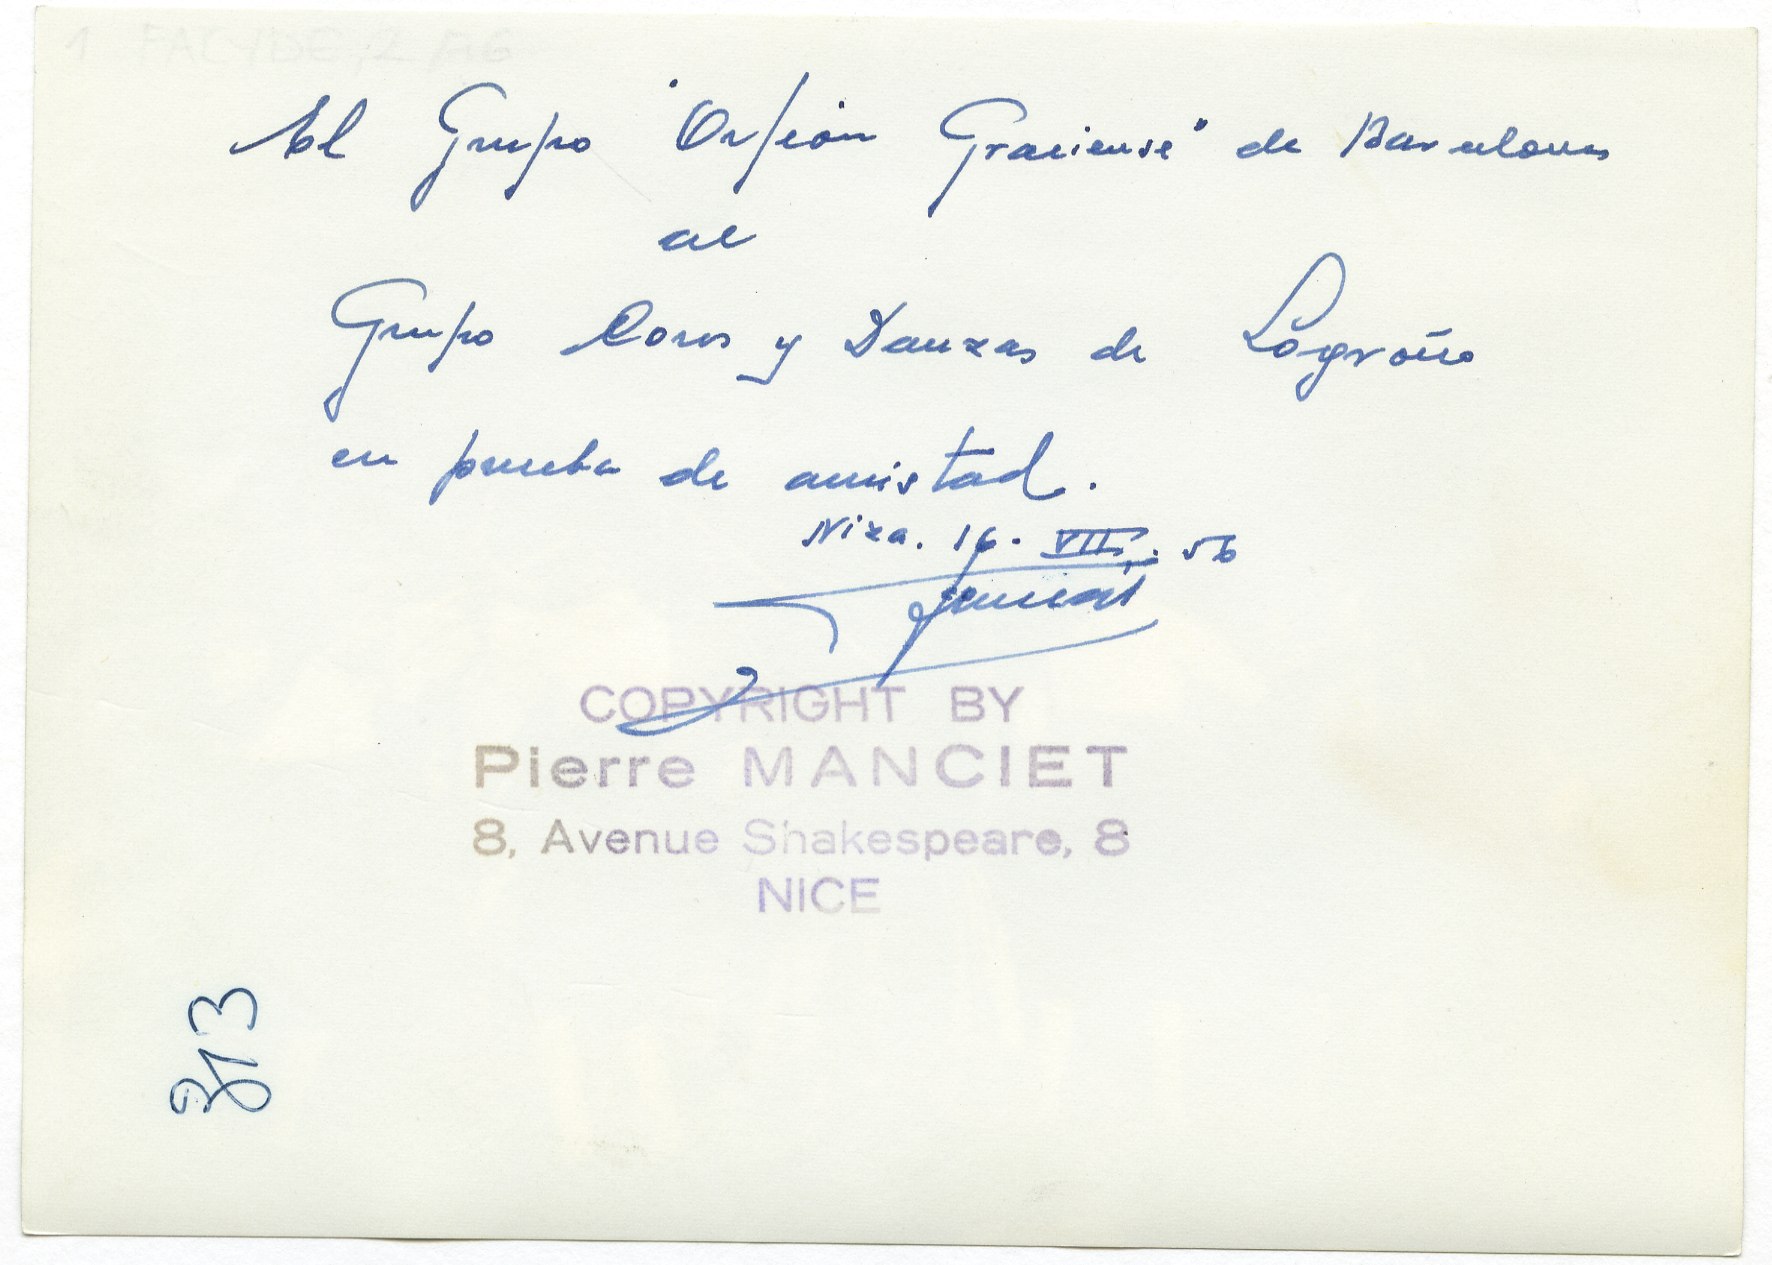 El Grupo "Orfeón Graciense" de Barcelona
al
Grupo Coros y Danzas de Logroño
en prueba de amistad.
Niza. 16. VII. 56
COPYRIGHT BY
Pierre MANCIET
8, Avenue Shakespeare, 8
NICE
813